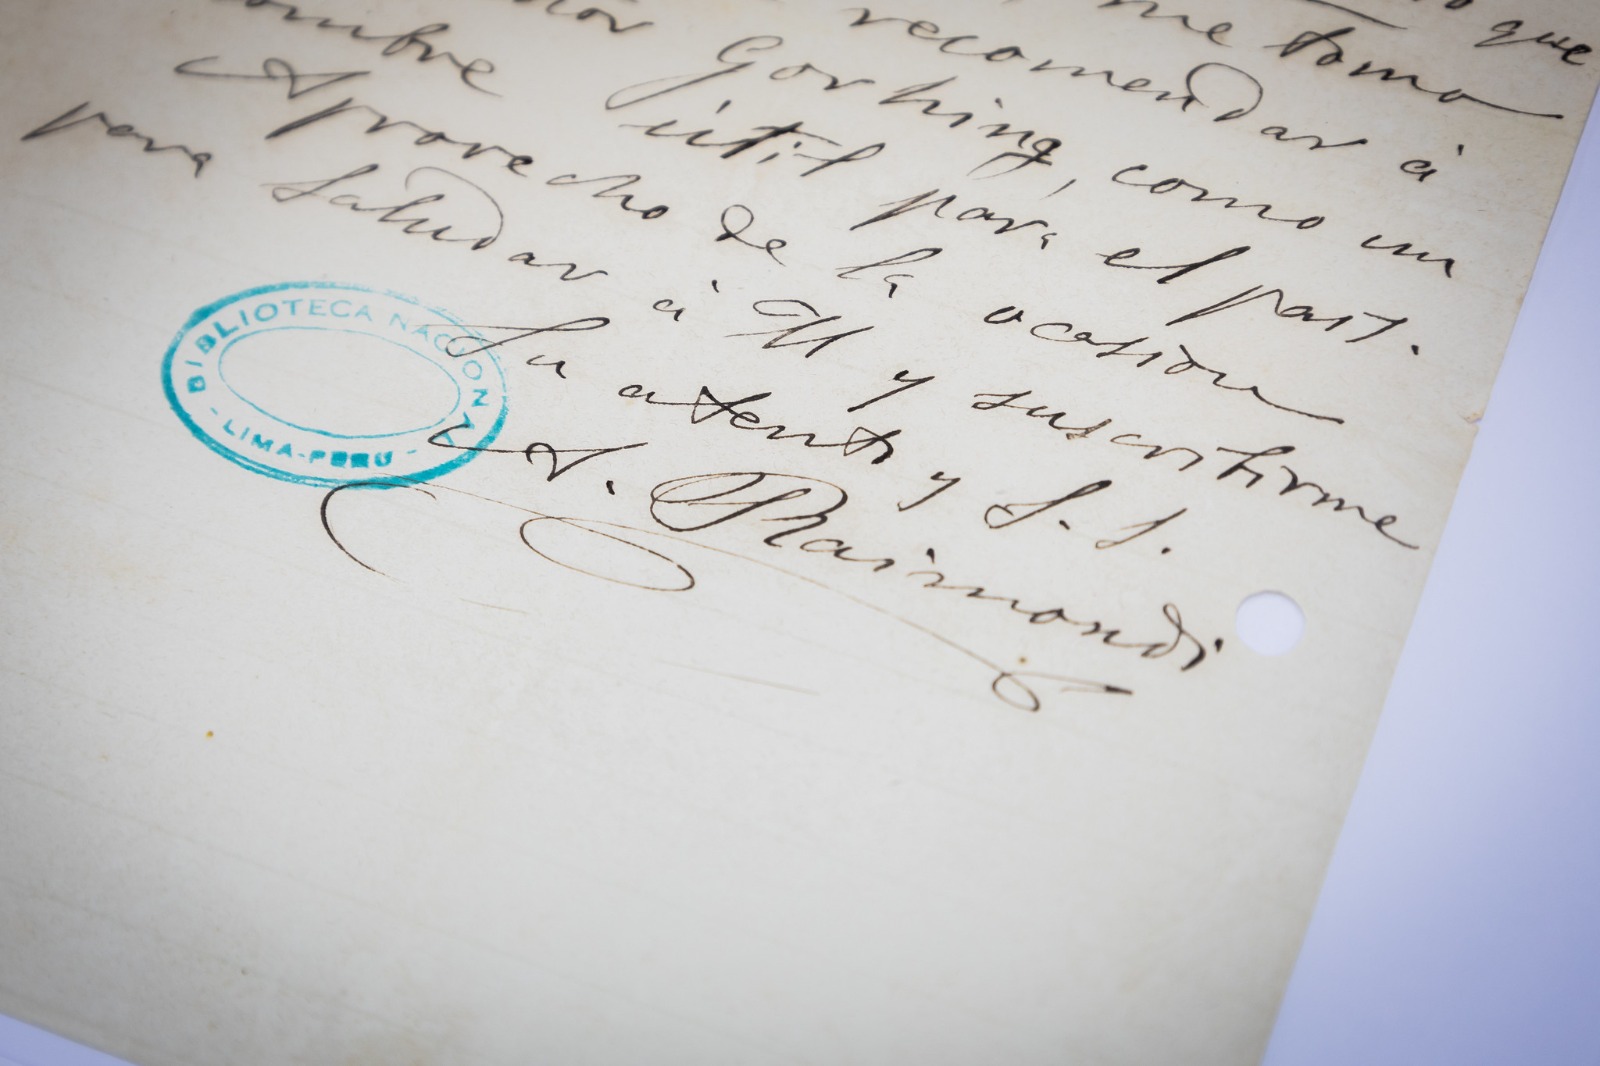 que
me tomo
recomendar á
Gorbing, como un
hombre útil para el part.
Aprovecho de la ocasion
para saludar á U y suscribirme
Su atento y S. S.
A. Raimondi
BIBLIOTECA NACIONAL
- LIMA-PERU -